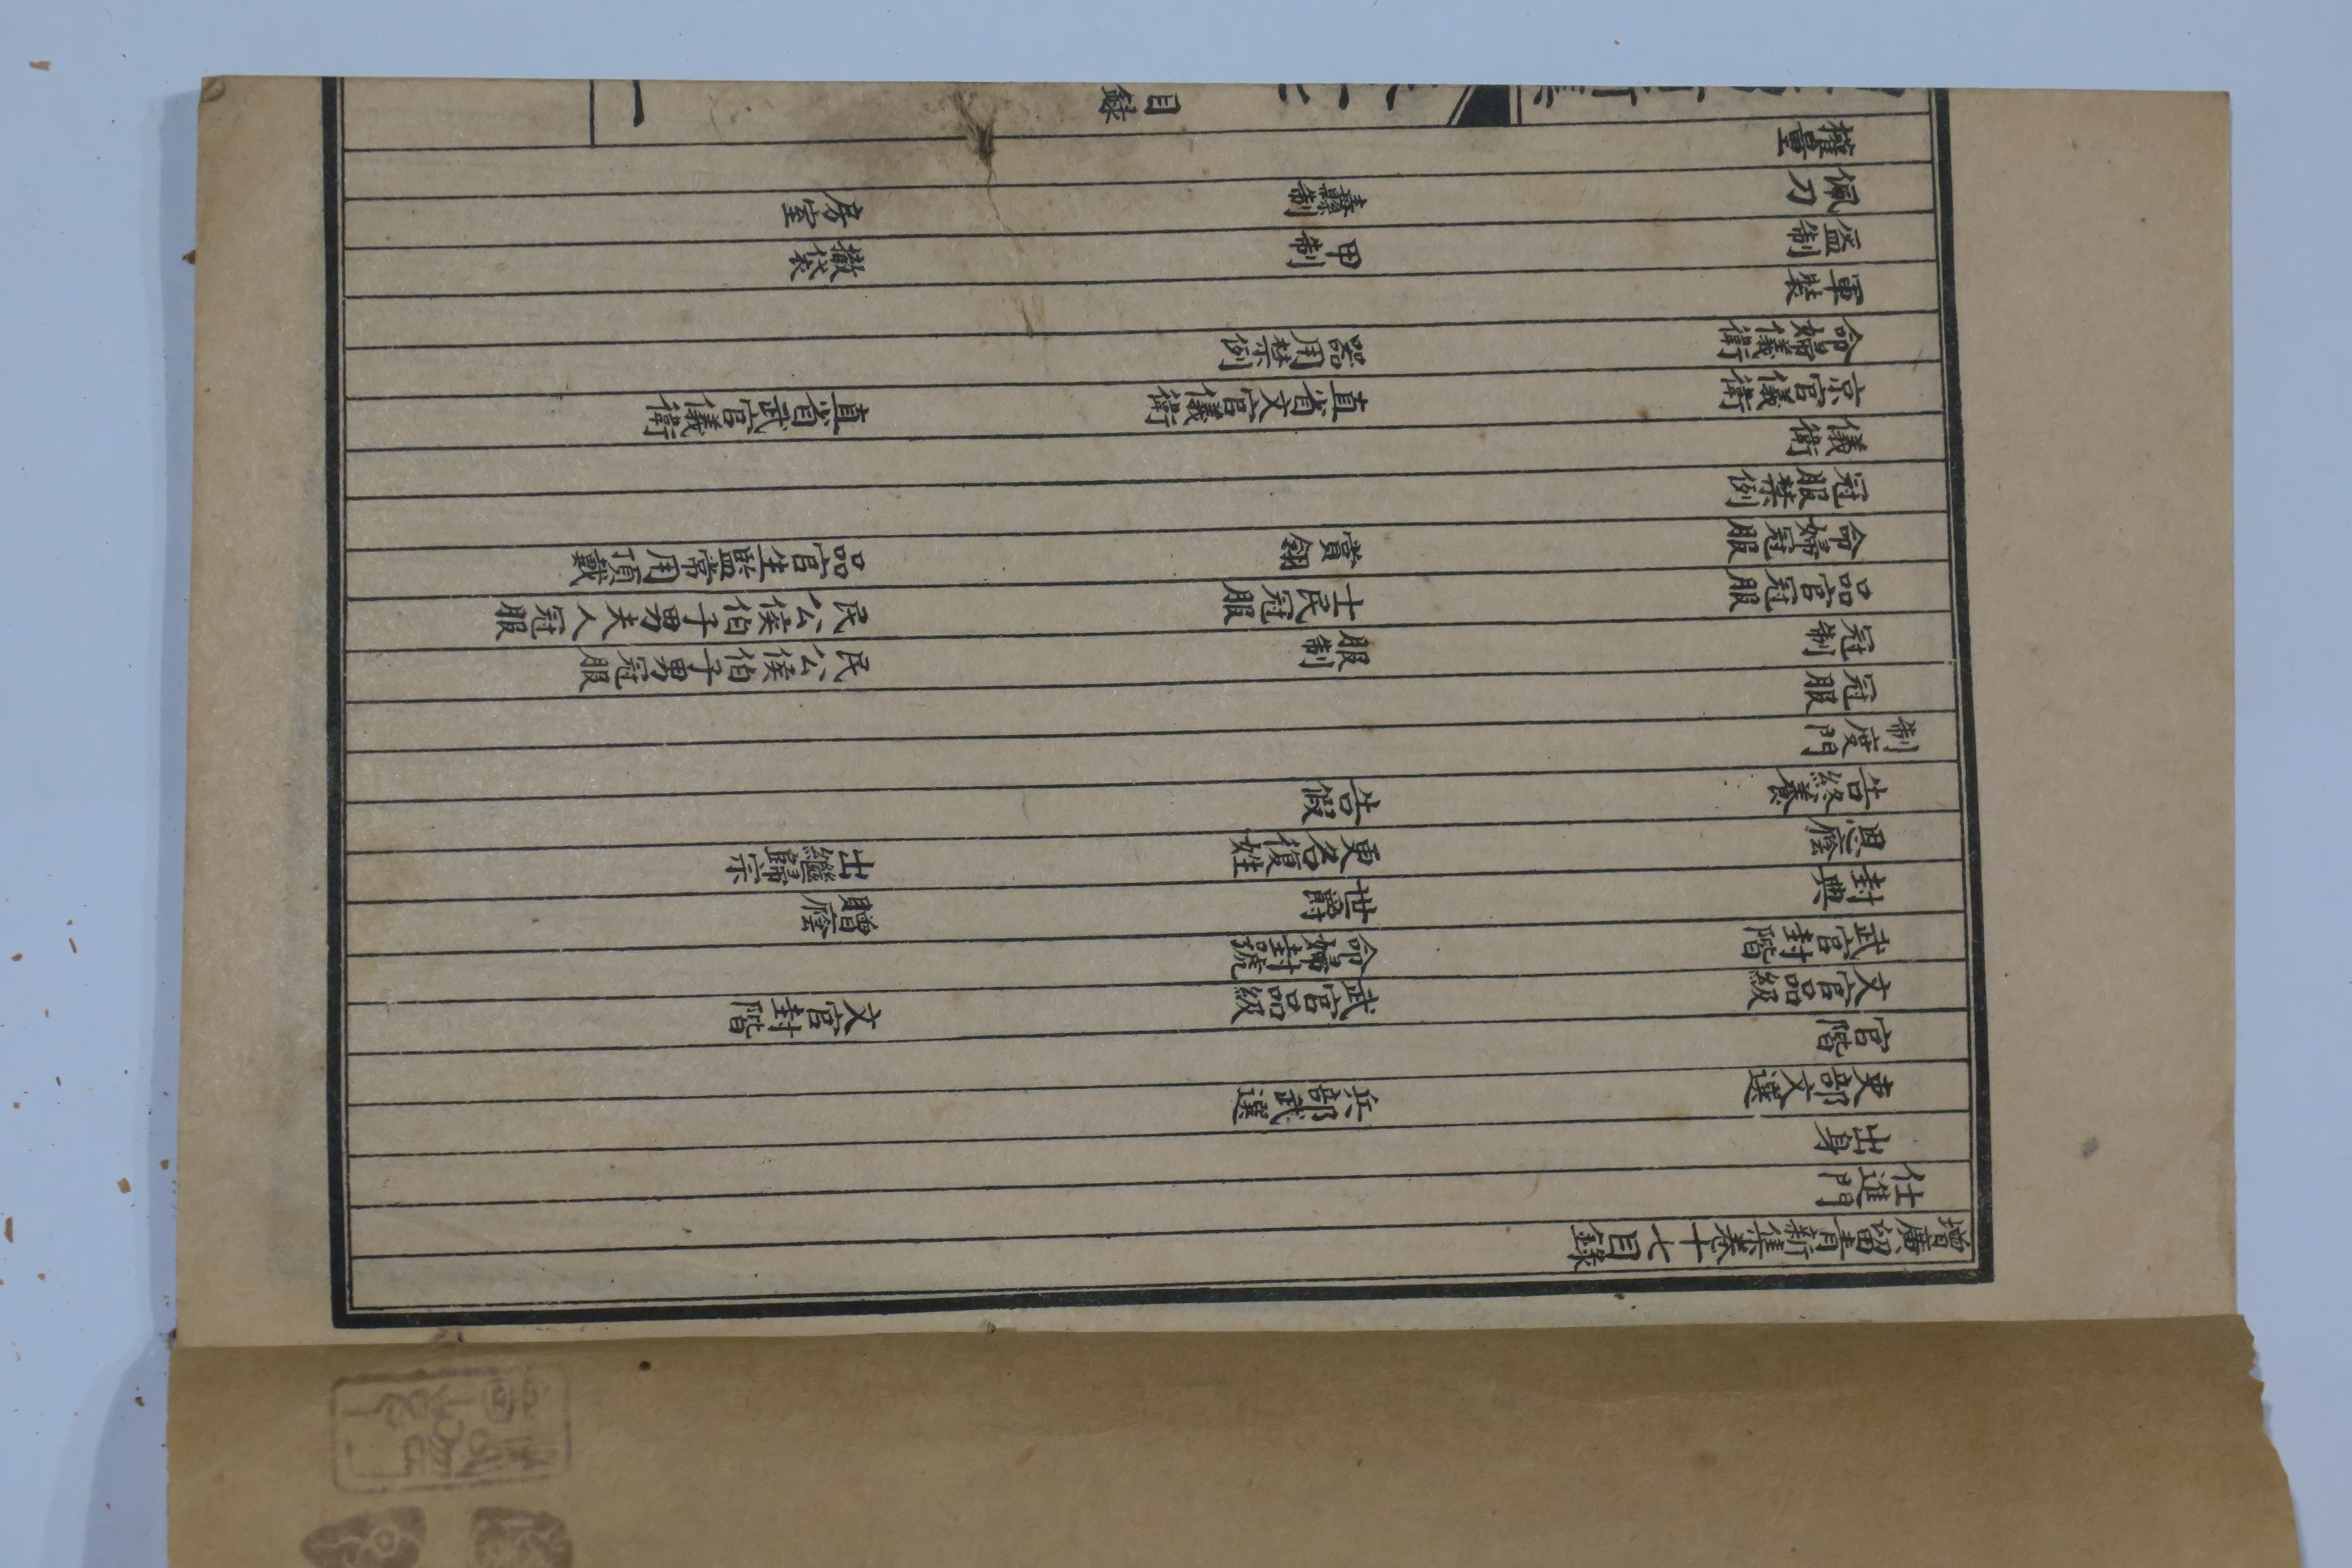 增廣留青新集卷十七目錄
仕進門
出身
吏部文選　兵部武選
官階
文官品級　武官品級　文官封階
武官封階　命婦封號
封典　世爵　贈廕
恩廕　更名復姓　出繼歸宗
告終養　告假
制度門
冠服
冠制　服制　民公侯伯子男冠服
品官冠服　士民冠服　民公侯伯子男夫人冠服
命婦冠服　賞翎　品官生監常用頂戴
冠服禁例
儀衛
京官儀衛　直省文官儀衛　直省武官儀衛
命婦儀衛　器用禁例
軍裝
盔制　甲制　撒袋
佩刀　纛制　房室
權量
目錄
一